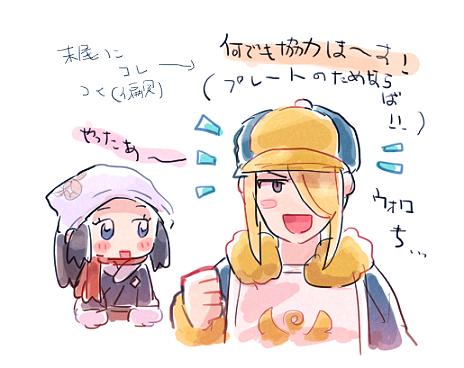 末尾に
コレ →
つく(偏見)
何でも協力しま〜す!
(プレートのためならば!!)
やったぁ〜
ウォロ
ち…